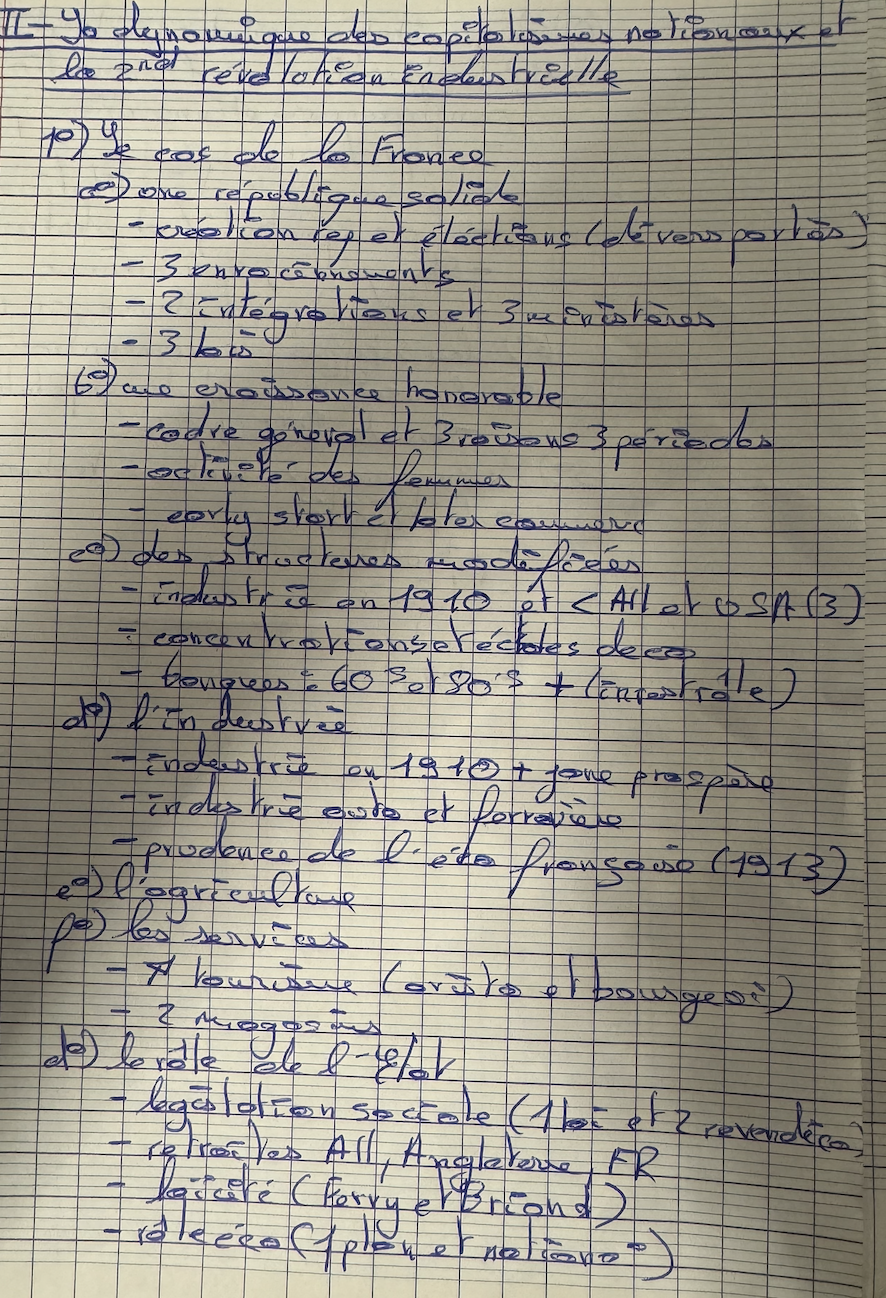 II - La dynamique des capitalismes nationaux et
la 2nd révolution industrielle
1°) Le cas de la France
a°) une république solide
- création rep et éléctions (divers partis)
- 3 enracinements
- 2 intégrations et 3 ministères
- 3 lois
b°) une croissance honorable
- cadre général et 3 raisons 3 périodes
- activité des femmes
- early start et later
c°) des structures modifiées
- industrie en 1910 et < All et USA (3)
- concentrations et échelles de co
- banques : 60's et 80's + (industrielle)
d°) l'industrie
- industrie en 1910 + zone prospère
- industrie auto et ferroviaire
- prudence de l'éco française (1913)
e°) l'agriculture
f°) les services
- 1 tourisme (aristo et bourgeoi)
- 2 magasins
d°) le rôle de l'Etat
- législation sociale (1 loi et 2 revendica)
- retraites All, Angleterre, FR
- laïcité (Ferry et Briand)
- rôle éco (1 plan et nationa°)